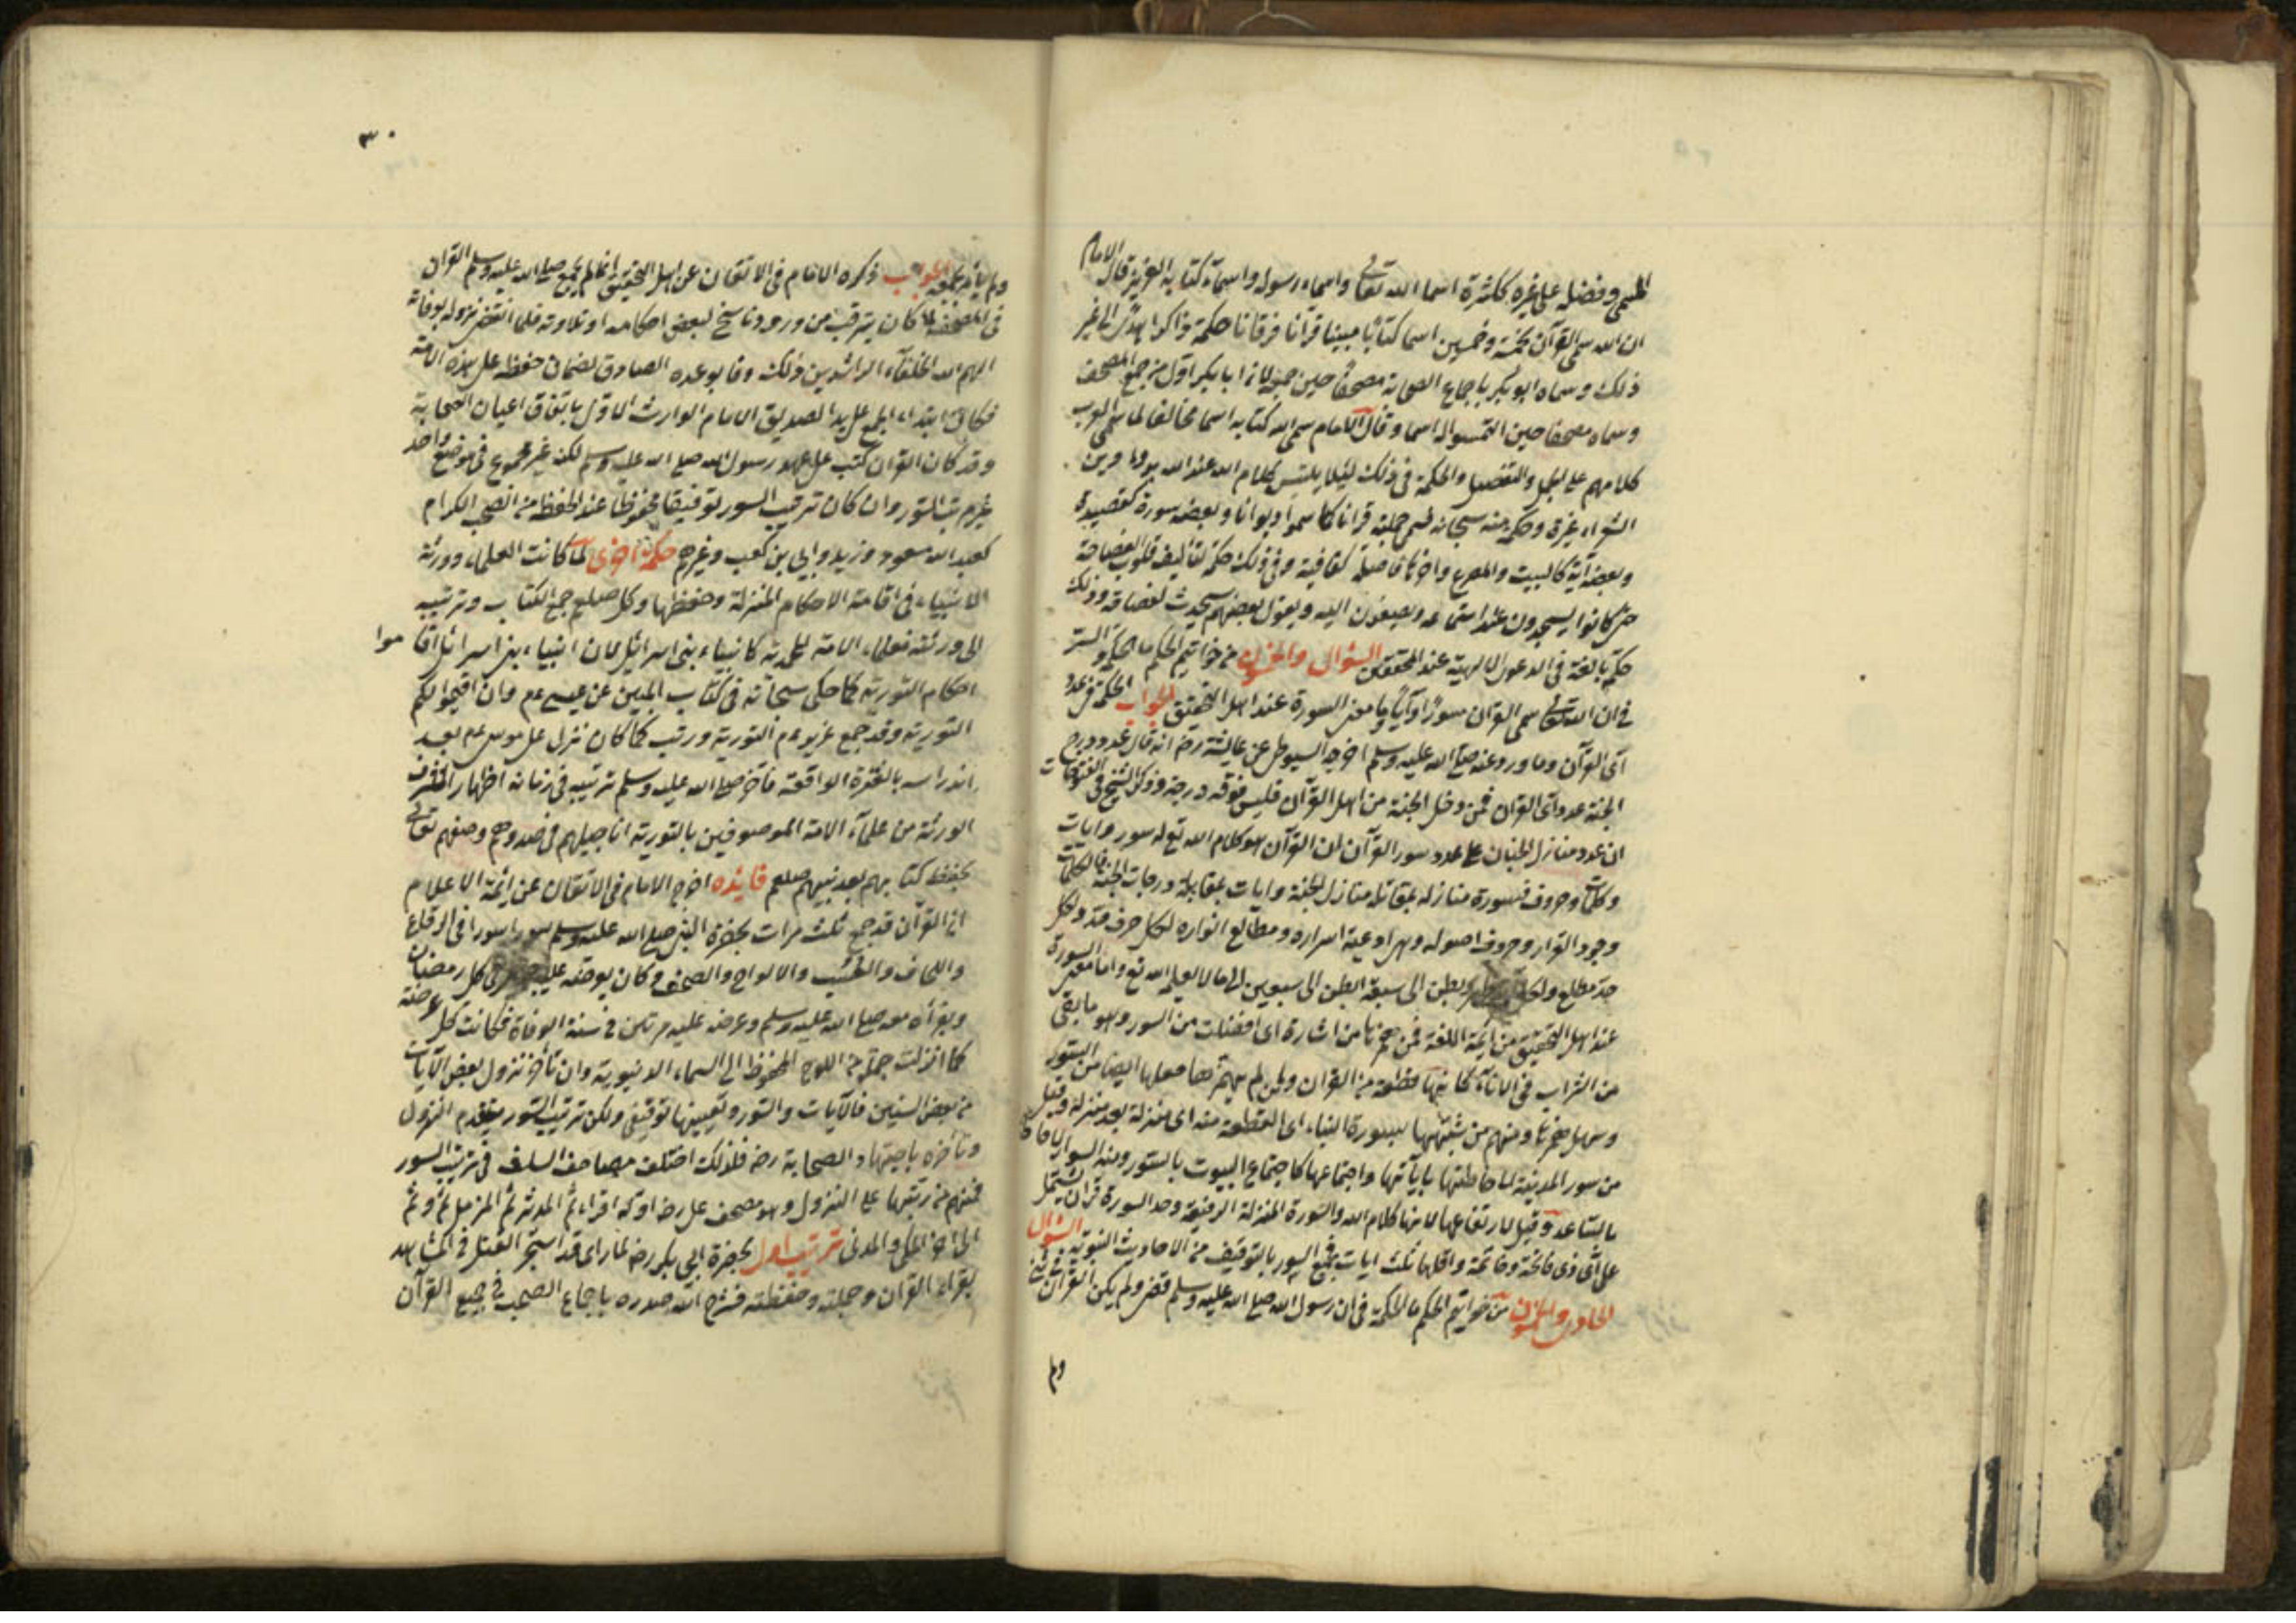 المسمى وفضله على غيره ككثرة اسما الله تعالى واسماء رسوله واسمآء كتابه العزيز قال الامام
ان الله سمى القرآن بخمسة وخمسين اسما كتابا مبينا قرآنا فرقانا حكمة وذاكرا الى غير
ذلك وسماه ابو بكر باجماع الصحابة مصحفا حين جمعه لان ابا بكر اول من جمع المصحف
وسماه مصحفا حين التمسوا له اسما وقال الامام سمى الله كتابه اسما مخالفا لما سمى العرب
كلامهم على الجمل والتفصيل والحكمة في ذلك ليلا يلتبس كلام الله عند الله
الشعراء غيرة وحكمة منه سبحانه فسمى جملته قرانا كما سموا ديوانا وبعضه سورة كقصيدة
وبعضه آية كالبيت والمصرع واخرها فاصلة كقافية وفي ذلك حكمة لتأليف قلوب الفصاحة
حتى كانوا يسجدون عند استماعه ويصغون اليه ويقول بعضهم سجدت لفصاحته وذلك
حكمة بالغة في الدعوة الالهية عند المحققين السؤال والخمسون من خواتيم الحكم ما الحكم والسر
في ان الله تعالى سمى القرآن سورا وآيا وما معنى السورة عند اهل التحقيق الجواب الحكمة في عدد
آى القرآن وما ورد عنه صلى الله عليه وسلم اخرجه السيوطى عن عايشة رضه انه قال عدد درج
الجنة عدد آى القرآن فمن دخل الجنة من اهل القرآن فليس فوقه درجة وذكر الشيخ في الفتوحات
ان عدد منازل الجنان على عدد سور القرآن لان القرآن هو كلام الله تع له سور وايات
وكلمات وحروف فسورة منازله بمقابلة منازل الجنة وايات بمقابلة درجات الجنة فالكلمات
وجود القرار وحروف اصوله وهى اوعية اسراره ومطالع انواره لكل حرف حد ولكل
حد مطلع ولكل بطن الى سبعة ابطن الى سبعين الى ما لا يعلمه الا الله تع واما معنى السورة
عند اهل التحقيق من ايمة اللغة فمن همزها من اشارة اى افضلت من السور وهو ما بقى
من الشراب في الاناء كانها قطعة من القران ومن لم يهمزها جعلها ايضا من السور
وسهل همزتها ومنهم من يشبهها بسورة البناء اى القطعة منه اى منزلة بعد منزلة وقيل
من سور المدينة لاحاطتها بآياتها واجتماعها كاجتماع البيوت بالسور ومنه السوار لاحاطته
بالساعد وقيل لارتفاعها لانها كلام الله والسورة المنزلة الرفيعة وحد السورة قران يشتمل
على اى ذى فاتحة وخاتمة واقلها ثلث ايات بجميع السور بالتوقيف من الاحاديث النبوية السؤال
الحادى والخمسون من خواتيم الحكم ما الحكمة في ان رسول الله صلى الله عليه وسلم قبض ولم يكن القرآن جمع
ولم
٣٠
ولم يأمر بجمعه الجواب ذكره الامام في الاتقان عن اهل التحقيق انما لم يجمع صلى الله عليه وسلم القرآن
في المصحف لما كان يترقب من ورود ناسخ لبعض احكامه او تلاوته فلما انقضى نزوله بوفاته
الهم الله الخلفآء الراشدين ذلك وفا بوعده الصادق بضمان حفظه على هذه الامة
فكان ابتداء الجمع على يد الصديق الامام الوارث الاول باتفاق اعيان الصحابة
وقد كان القران كتب على عهد رسول الله صلى الله عليه وسلم لكنه غير مجموع في موضع واحد
غير مرتب السور وان كان ترتيب السور توقيفا محفوظا عند الحفظة من الصحب الكرام
كعبد الله مسعود وزيد وابى بن كعب وغيرهم حكمة اخرى لما كانت العلماء وورثة
الانبياء في اقامة الاحكام المنزلة وحفظها وكل صلعم جمع الكتاب وترتيبه
الى ورثته فعلماء الامة المحمدية كانبياء بنى اسرائيل لان انبياء بنى اسرائيل اقاموا
احكام التورية كما حكى سبحانه في كتاب المبين عن عيسى عم وان اقيموا لكم
التورية وقد جمع عزير عم التورية ورتب كما كان نزل على موسى عم بعد
اندراسه بالفترة الواقعة فأخر صلى الله عليه وسلم ترتيبه في زمانه اظهارا لشرف
الورثة من علمآء الامة الموصوفين بالتورية اناجيلهم في صدورهم وصفهم تعالى
بحفظ كتابهم بعد نبيهم صلعم فايده اخرج الامام في الاتقان عن ايمة الاعلام
ان القرآن قد جمع ثلث مرات بحضرة النبى صلى الله عليه وسلم سورا سورا في الرقاع
واللحاف والخشب والالواح والصحف وكان يعرضه على جبريل فى كل رمضان
ويقرأه معه صلى الله عليه وسلم وعرضه عليه مرتين في سنة الوفاة فكانت كل عرضة
كما انزلت جملة من اللوح المحفوظ الى السماء الدنيوية وان تأخر نزول بعض الآيات
من بعض السنين فالآيات والسور وتعيينها توقيفى ولكن ترتيب السور بتقدم النزول
وتأخره باجتهاد الصحابة رضه فلذلك اختلف مصاحف السلف في ترتيب السور
فمنهم من رتبها على النزول وهو مصحف على رضه اوله اقراء ثم المدثر ثم المزمل ثم وثم
الى اخر المكى والمدنى ترتيب اول بحضرة ابى بكر رضه لما راى قد استحر القتل في المشاهد
بقراء القران وحملته وحفظته فشرح الله صدره باجماع الصحب في جميع القرآن